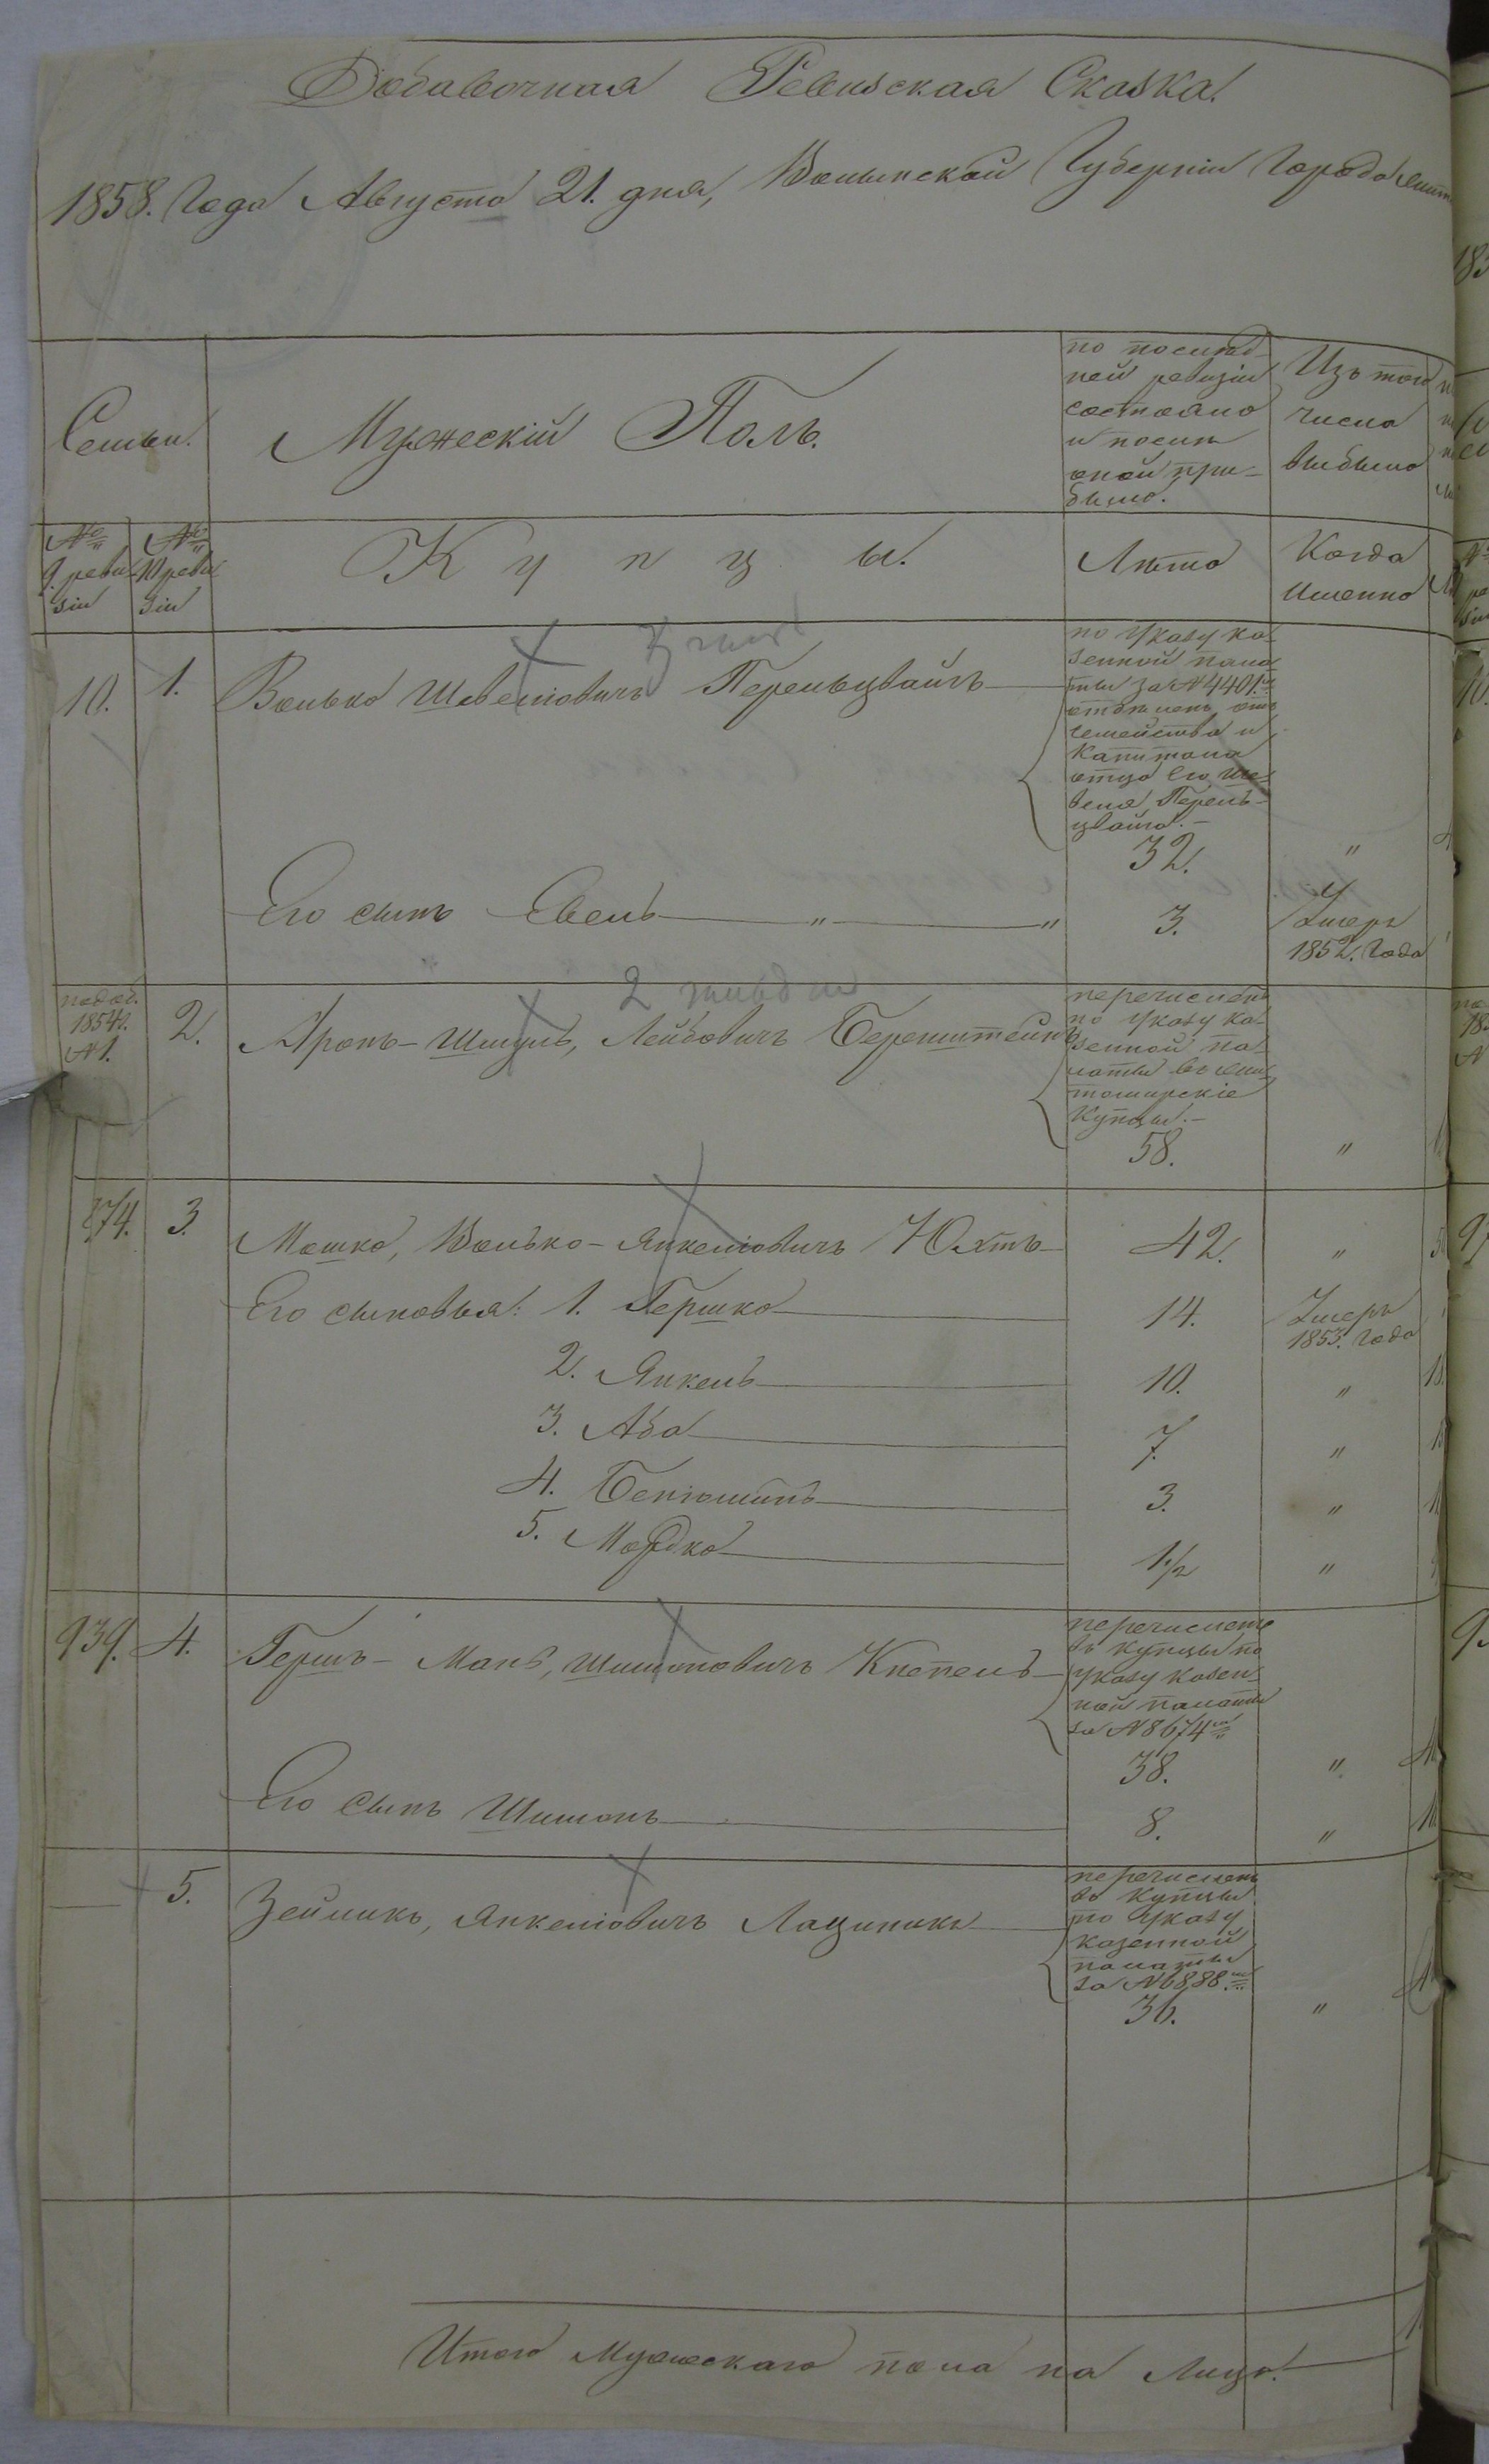 Добавочная Ревизская Сказка.
1858. Года Августа 21. дня, Волынской Губерніи Города Жит
Семьи.
Мужескій Полъ.
по послѣд-
ней ревизіи
состояло
и послѣ
оной при-
было.
Изъ того
числа
выбыло
№
9. реви
зіи
№
10 реви
зіи
Купцы.
Лѣта
Когда
именно
10.
1.
Волько Шевелiовичъ Перельцвайгъ
по Указу ка-
зенной пала
ты за № 4401.м
отдѣленъ отъ
семейства и
Капитала
отца его Ше-
веля Перель-
цвайга.-
32.
"
Его сынъ Евель " "
3.
Умеръ
1852. Года
подоб.
1854г.
№ 1.
2.
Аронъ-Шмуль, Лейбовичъ Беренштейнъ
перечисленъ
по Указу ка-
зенной па-
латы въ Жи-
томирскіе
Купцы.-
58.
"
874.
3.
Мошко, Волько-Янкеліовичъ Юхтъ
42.
"
Его сыновья: 1. Гершко
14.
Умеръ
1853. Года
2. Янкель
10.
"
3. Аба
7.
"
4. Беніоминъ
3.
"
5. Мордко
1½
"
939.
4.
Гершъ-Манъ, Шимоновичъ Кнепель
перечисленъ
въ Купцы по
Указу казен-
ной палаты
за № 8674м
38.
"
Его Сынъ Шимонъ
8.
"
5.
Зейликъ, Янкеліовичъ Лащиникъ
перечисленъ
въ Купцы
по Указу
казенной
палаты
за № 6888.м
36.
"
Итого Мужескаго пола на Лицо.